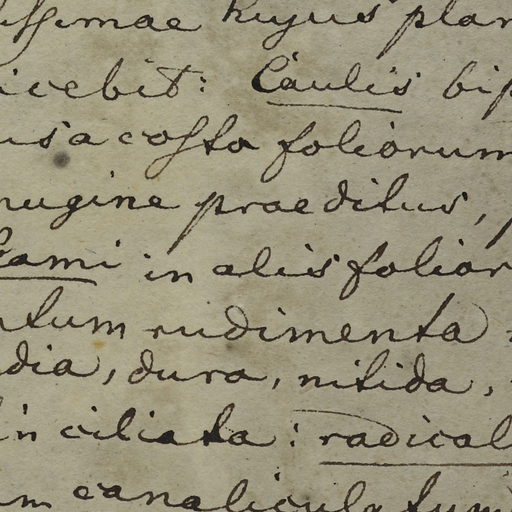 issimae hujus plan
icebit: Caulis bip
usa costa foliorum
nugine praeditus,
Rami in alis folior
ntum rudimenta
dia, dura, nitida,
in ciliata: radical
um canaliculatum